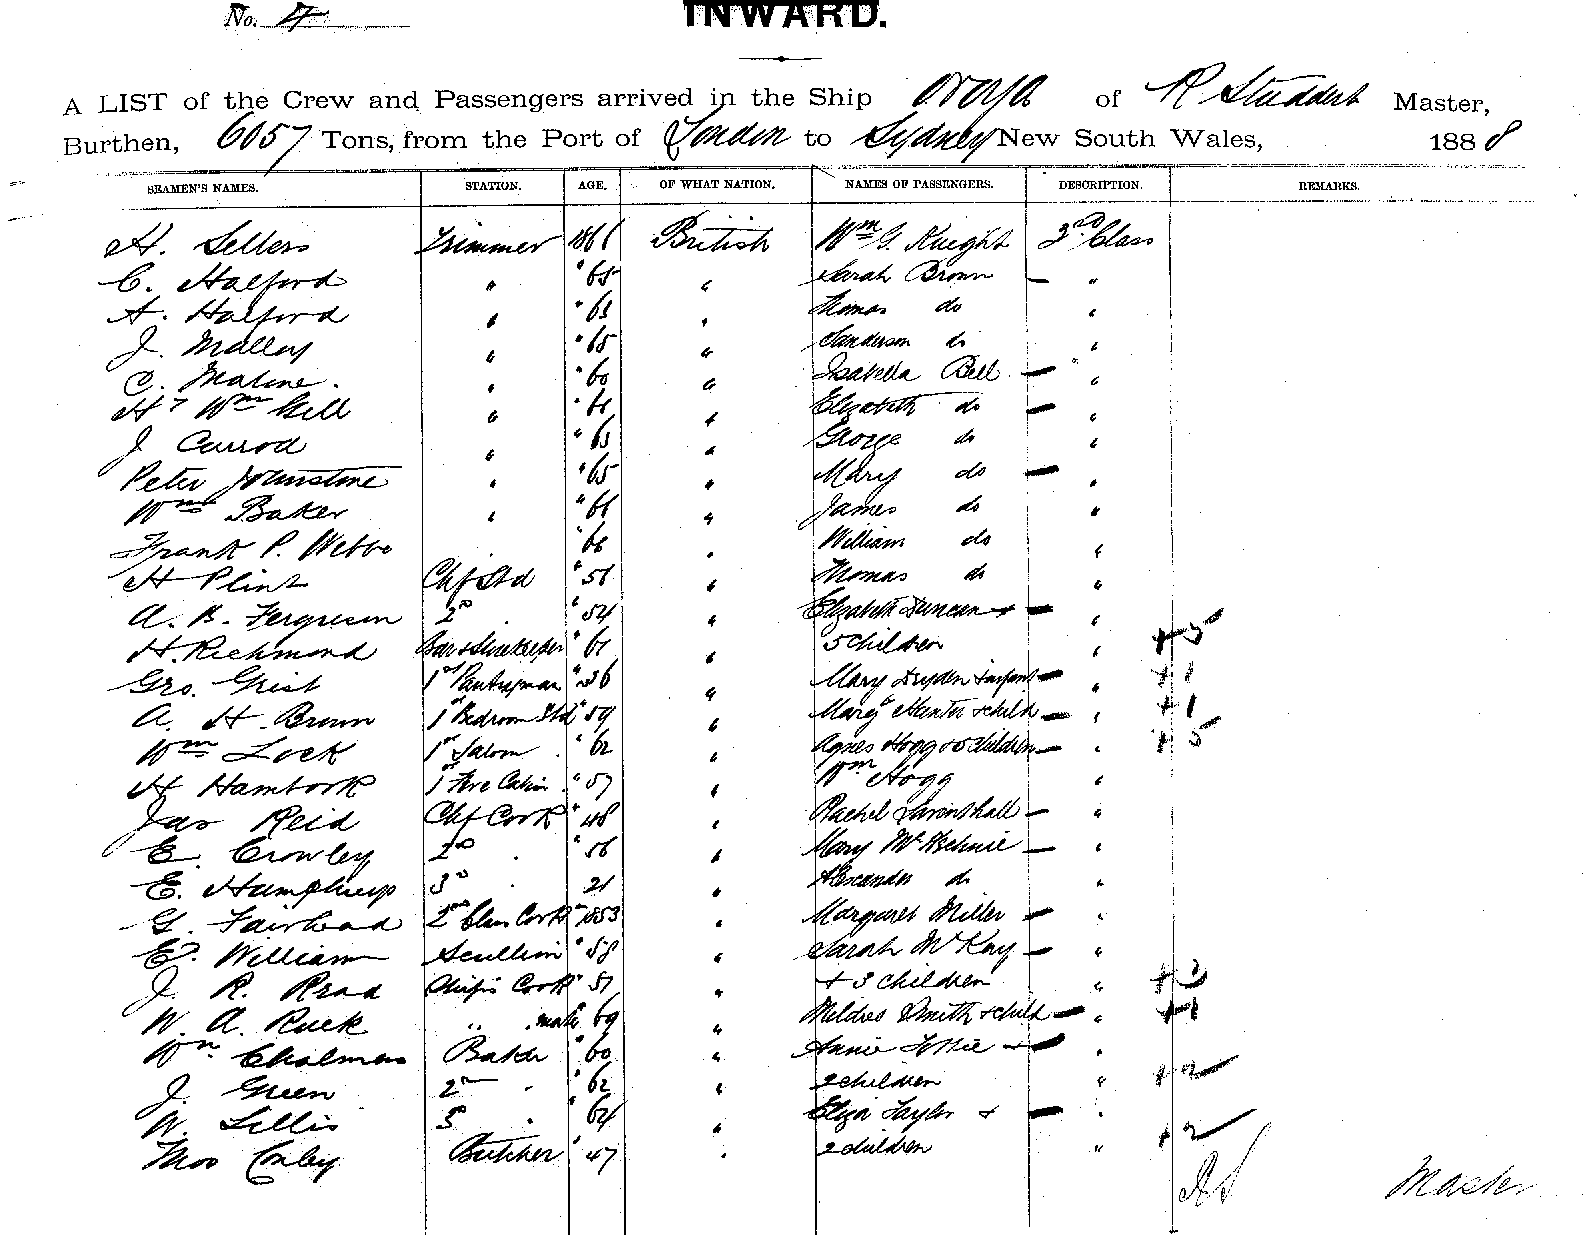 No. 4
INWARD.
A LIST of the Crew and Passengers arrived in the Ship Oroya of R Studdert Master,
Burthen, 6057 Tons, from the Port of London to Sydney New South Wales, 1888
SEAMEN'S NAMES. STATION. AGE. OF WHAT NATION. NAMES OF PASSENGERS. DESCRIPTION. REMARKS.
H. Sellers Trimmer 1866 British Wm G. Knight 3rd Class
C. Halford " " 65 " Sarah Brown — "
A. Halford " " 63 " Thomas do "
J. Malloy " " 65 " Sanderson do "
C. Maline. " " 60 " Isabella Bell — "
Hy Wm Gill " " 61 " Elizabeth do — "
J Carrod " " 63 " George do "
Peter Johnstone " " 65 " Mary do — "
Wm Baker " " 66 " James do "
Frank P. Webbe " 68 " William do "
H Plint Chf Std " 51 " Thomas do "
A. B. Ferguson 2nd " 54 " Elizabeth Duncan + —
H. Richmond Bar & Storekeeper " 61 " 5 children " + 5
Geo. Grist 1st Pantryman " 36 " Mary Dryden & infant — " + 1
A. H. Brown 1st Bedroom Std " 59 " Margt Hunter & child — " + 1
Wm Lock 1st Saloon " 62 " Agnes Hogg & 5 children — " + 5
H Hambook 1st Fore Cabin " 57 " Wm Hogg "
Jas Reid Chf Cook " 48 " Rachel — "
E. Crowley 2nd " " 56 " Mary McKechnie — "
E. Humphreys 3rd " 21 " Alexander do "
G. Fairhead 2nd Class Cook 1853 " Margaret Miller — "
E. William Scullion " 58 " Sarah McKay — "
J. R. Read Ship's Cook " 51 " + 3 children " + 3
W. A. Ruck " mate 69 " Mildred Smith & child — " + 1
Wm Chalmers Baker " 60 " Annie + — "
J. Green 2nd " " 62 " 2 children " + 2
W. Lillis 3 " " 64 " Eliza Taylor + — "
Thos Conley Butcher " 47 " 2 children " + 2
RS Master